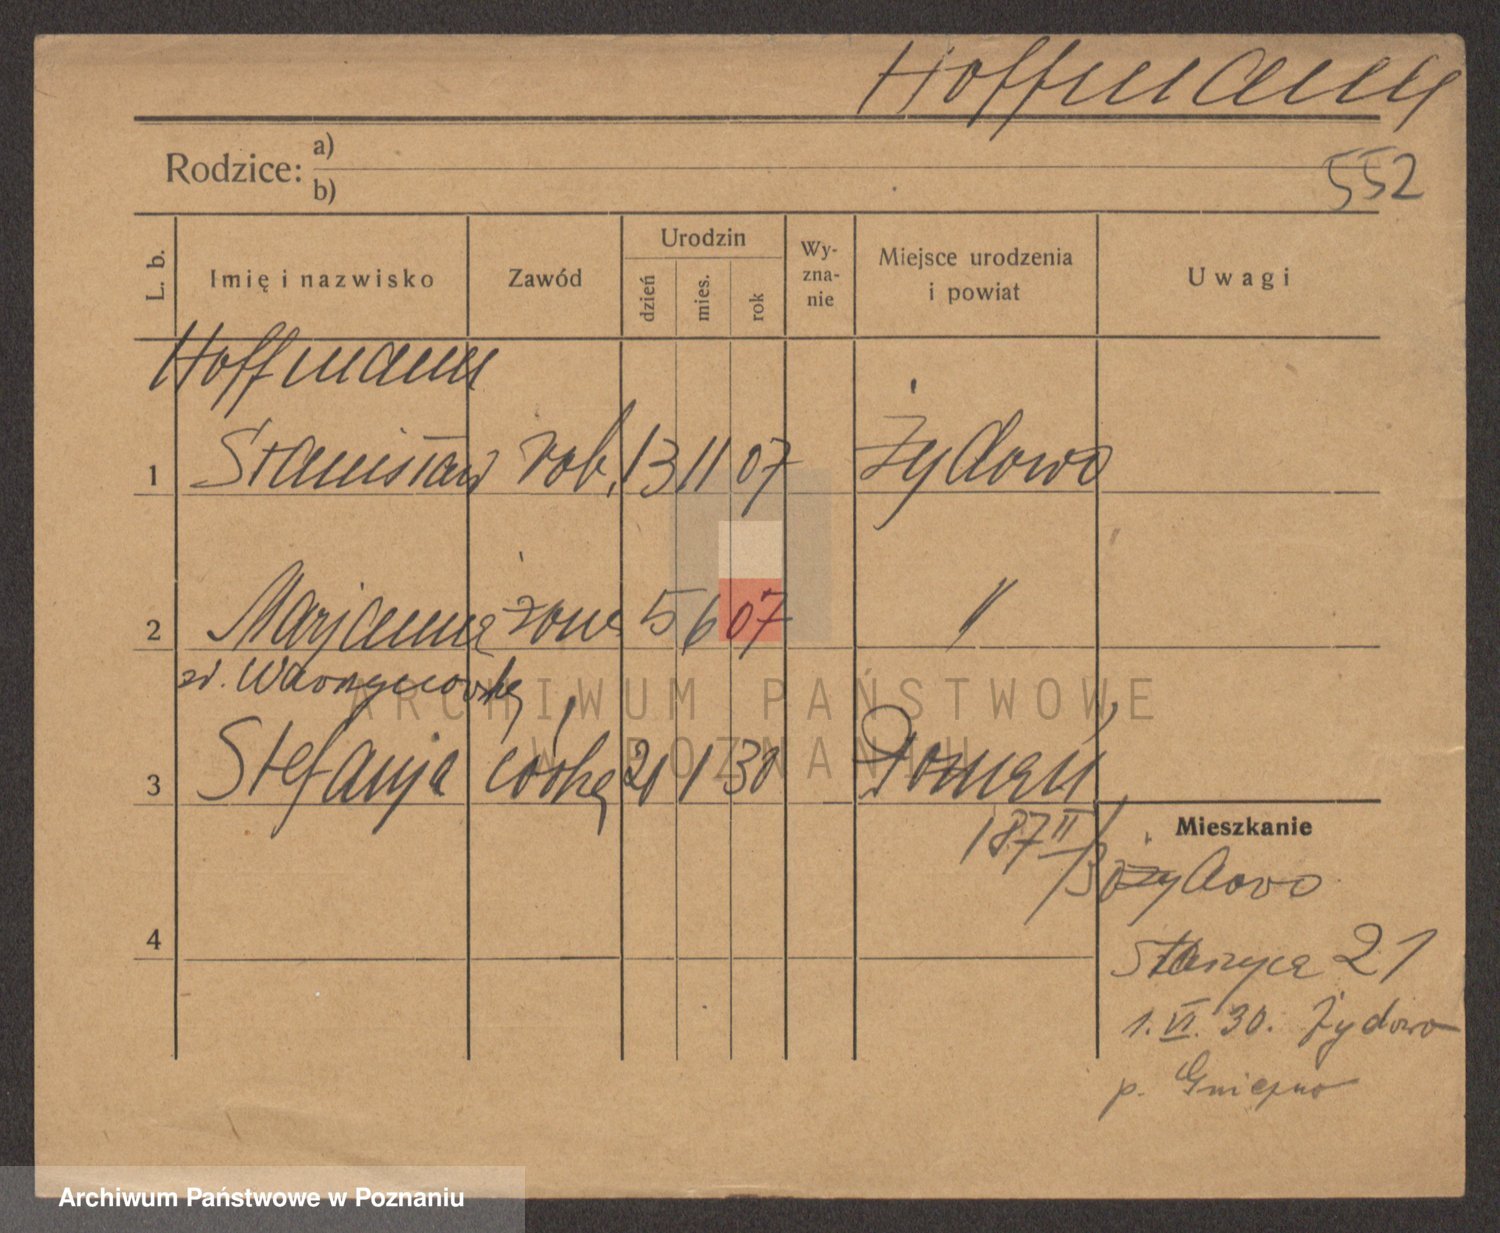 Hoffmann
552
Rodzice: a)
b)
L. b. Imię i nazwisko Zawód Urodzin dzień mies. rok Wy-zna-nie Miejsce urodzenia i powiat Uwagi
Hoffmann
1 Stanisław rob. 13 11 07 Żydowo
2 Marjanna żona 5 6 07 "
zd.
3 Stefanja córka 20 1 30 Poznań
Mieszkanie
18.7 II/30 Żydowo
4
21
1. VI. 30. Żydowo
p. Gniezno
ARCHIWUM PAŃSTWOWE
W POZNANIU
Archiwum Państwowe w Poznaniu